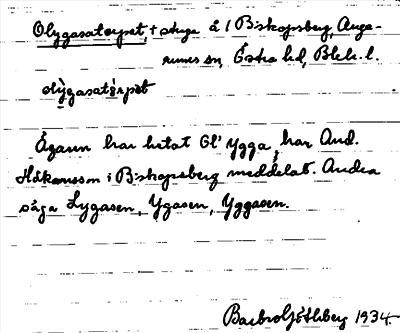 Olyggasatorpet, † stuga å 1 Biskopsberg, Auge-
rums sn, Östra hd, Blek. l.
olỳggasatorpet
Ägaren har hetat Ol' Ygga, har And.
Håkansson i Biskopsberg meddelat. Andra
säga Lygasen, Ygasen, Yggasen.
Barbro Götlberg 1934.